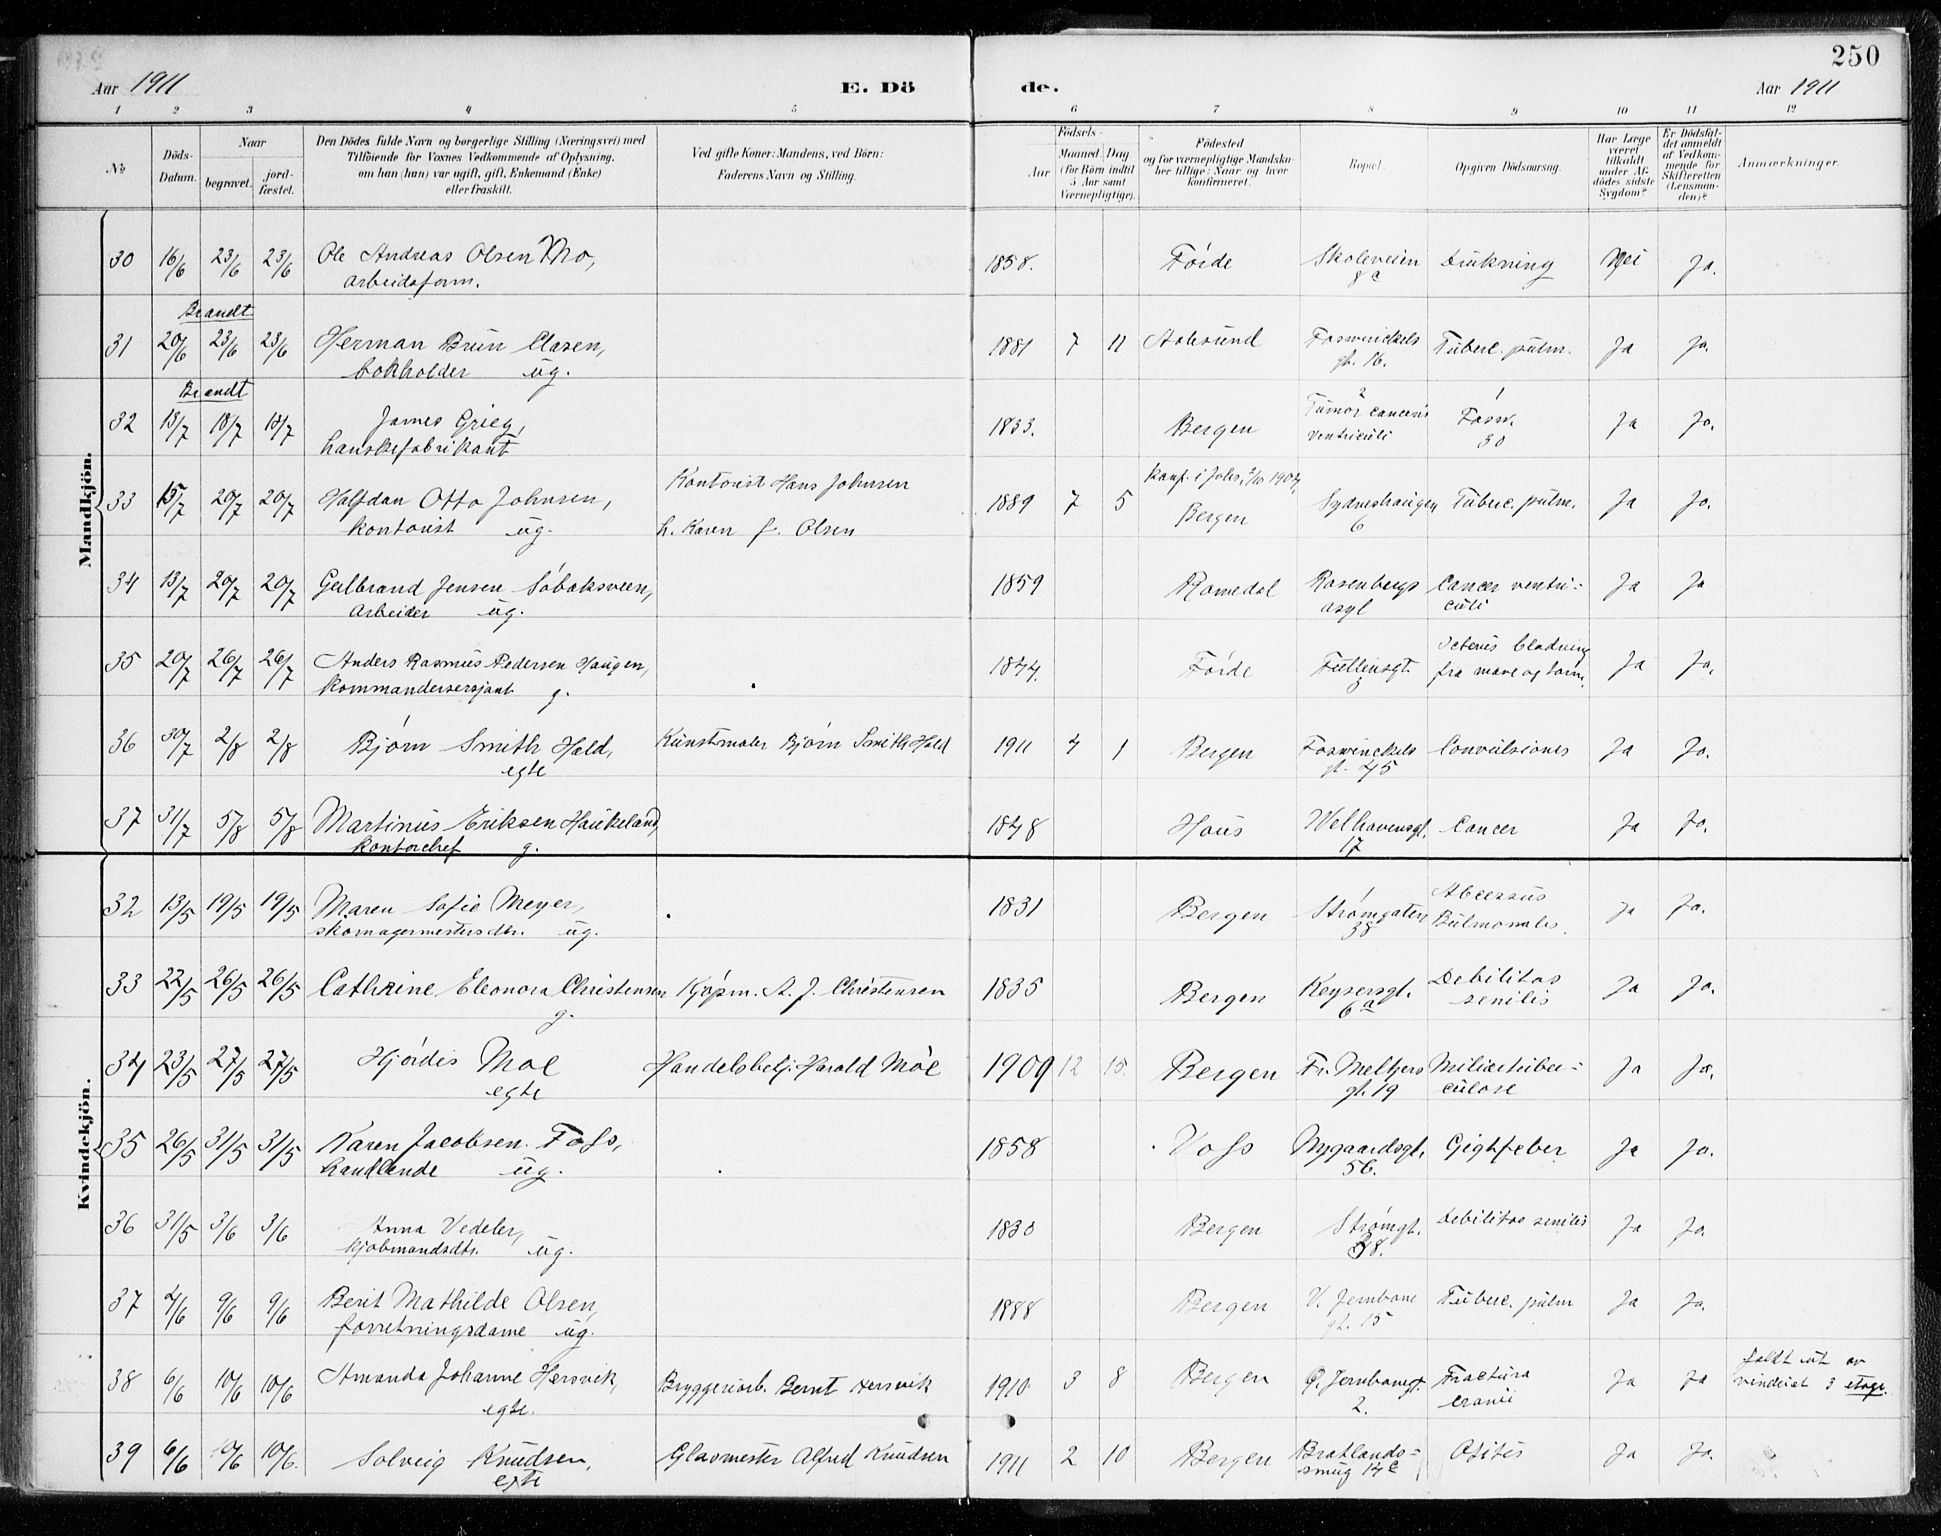 250
Aar 1911 E. Dö de. Aar 1911
1 2 3 4 5 6 7 8 9 10 11 12
No
Döds-Datum.
Naar
begravet.
jord-fæstet.
Den Dödes fulde Navn og borgerlige Stilling (Næringsvei) med
Tilföiende for Voxnes Vedkommende af Oplysning,
om han (hun) var ugift, gift, Enkemand (Enke)
eller fraskilt.
Ved gifte Koner: Mandens, ved Börn:
Faderens Navn og Stilling.
Födsels-
Aar
Maaned Dag
(for Börn indtil
5 Aar samt
Værnepligtige).
Födested
og for værnepligtige Mandska-
ber tillige: Naar og hvor
konfirmeret.
Bopæl.
Opgiven Dödsaarsag.
Har Læge
været
tilkaldt
under Af-
dödes sidste
Sygdom?
Er Dödsfal-
det anmeldt
af Vedkom-
mende for
Skifteretten
(Lensman-
den)?
Anmærkninger.
Mandkjön.
30 16/6 23/6 23/6 Ole Andreas Olsen Mo, 1858. Förde Skoleveien Drukning Nei Ja.
arbeidsform. 8a
Brandt
31 20/6 23/6 23/6 Herman Brun Clasen, 1881 7 11 Aalesund Foswinckels Tuberc. pulm. Ja Ja.
bokholder ug. gt. 16.
Brandt
32 13/7 18/7 18/7 James Grieg, 1833. Bergen 2 Tumor canceris 1 Fosw. Ja Ja.
hanskefabrikant ventriculi 30
33 15/7 20/7 20/7 Halfdan Otto Johnsen, Kontorist Hans Johnsen 1889 7 5 Konf. i Johs. 2/10 1904, Sydneshaugen Tuberc. pulm. Ja Ja.
kontorist ug. h. Karen f. Olsen Bergen 6
34 13/7 20/7 20/7 Gulbrand Jensen Söbaksveen, 1859 Romedal Rosenbergs Cancer ventri- Ja Ja
Arbeider ug. asyl culi
35 20/7 26/7 26/7 Anders Rasmus Pedersen Haugen, 1844. Förde Tullinsgt. Icterus blødning Ja Ja.
kommandersersjant g. 3 fra mave og tarm.
36 30/7 2/8 2/8 Bjørn Smith Hald, Kunstmaler Bjørn Smith Hald 1911 4 1 Bergen Foswinckels Convulsiones Ja Ja.
egte gt. 45
37 31/7 5/8 5/8 Martinus Eriksen Haukeland, 1848 Haus Welhavensgt. Cancer Ja Ja.
kontorchef g. 17
Kvindekjön.
32 13/5 19/5 19/5 Maren Sofie Meyer, 1831 Bergen Strømgaten Abcessus Ja Ja.
skomagermestersdtr. ug. 38 Pulmonalis.
33 22/5 26/5 26/5 Cathrine Eleonora Christensen Kjøpm. A. J. Christensen 1835 Bergen Keysersgt. Debilitas Ja Ja.
g. 6a senilis
34 23/5 27/5 27/5 Hjørdis Moe Handelsbetj. Harald Moe 1909 12 15. Bergen Fr. Meltzers Miliærtuber- Ja Ja.
egte gt. 19 culose
35 26/5 31/5 31/5 Karen Jacobsen Foss, 1858 Voss Nygaardsgt. Gigtfeber Ja Ja.
handlende ug. 56.
36 31/5 3/6 3/6 Anna Vedeler, 1830 Bergen Strømgt. Debilitas senilis Ja Ja.
kjøbmandsdtr. ug. 38.
37 4/6 9/6 9/6 Berit Mathilde Olsen, 1888 Bergen V. Jernbane Tuberc. pulm Ja Ja.
forretningsdame ug. gt. 15
38 6/6 10/6 10/6 Amanda Johanne Hersvik, Bryggeriarb. Bernt Hersvik 1910 3 8 Bergen Ø. Jernbanegt. Fractura Ja Ja faldt ut av
egte. 2. cranii vinduet 3 etage.
39 6/6 10/6 10/6. Solveig Knudsen, Glasmester Alfred Knudsen 1911 2 10 Bergen Bratlands- Otitis Ja Ja.
egte smug 14c